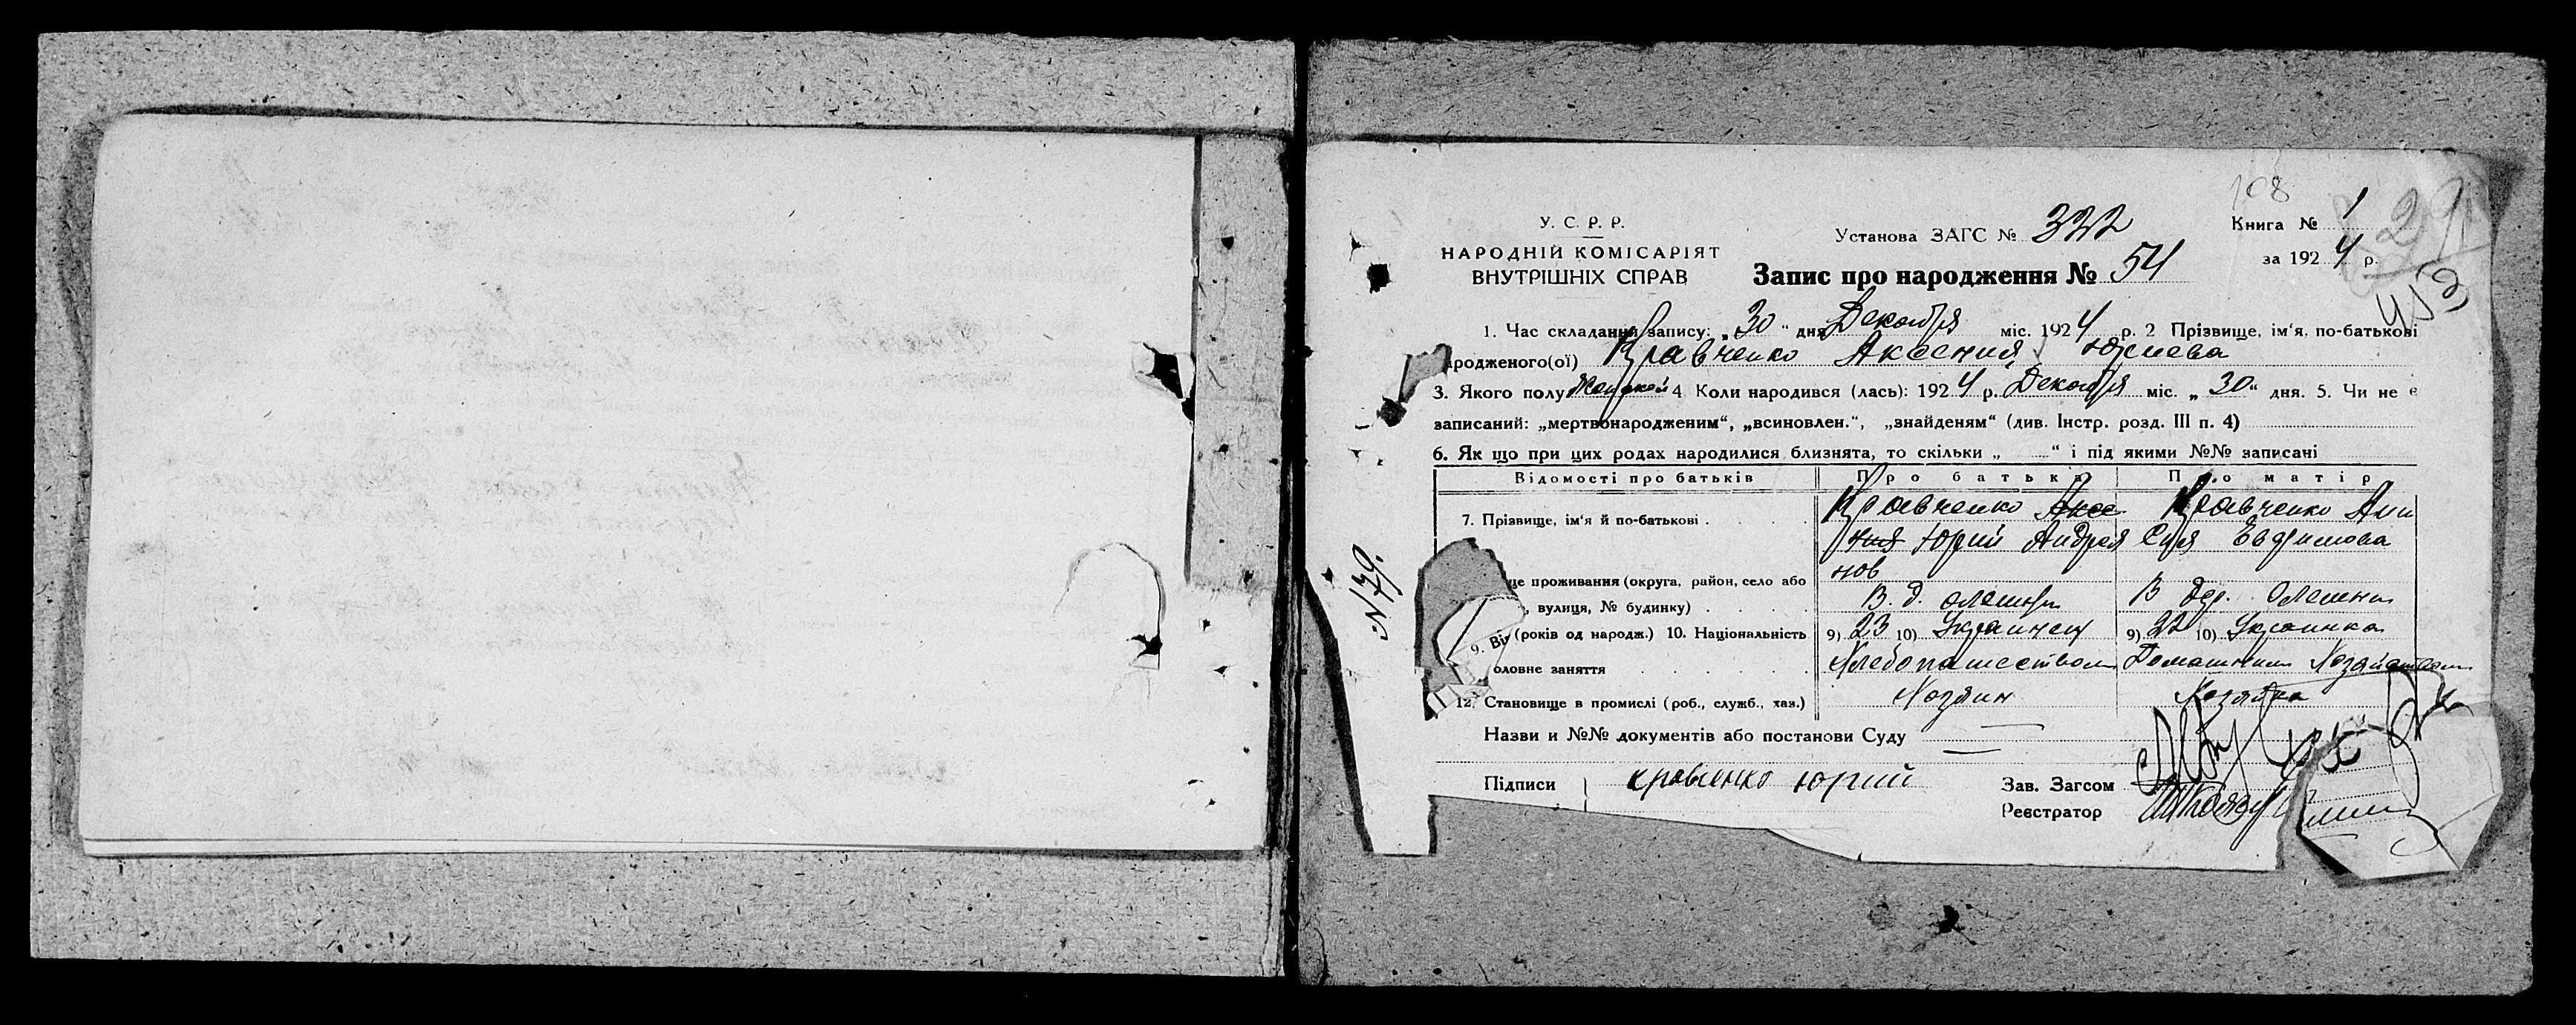 108
У. С. Р. Р.
НАРОДНІЙ КОМІСАРІЯТ
ВНУТРІШНІХ СПРАВ
Установа ЗАГС № 322
Книга № 1
за 1924 р.
29
Запис про народження № 54
1. Час складання запису: „30“ дня Декабря міс. 1924 р. 2 Прізвище, ім‘я, по-батькові
ародженого(ої) Кравченко Аксения Юриева
3. Якого полу Женской 4 Коли народився (лась): 1924 р. Декабря міс. „30“ дня. 5. Чи не є
записаний: „мертвонародженим“, „всиновлен.“, „знайденям“ (див. Інстр. розд. III п. 4)
6. Як що при цих родах народилися близнята, то скільки „ “ і під якими №№ записані
Відомості про батьків Про батька Про матір
7. Прізвище, ім‘я й по-батькові . Кравченко Аксе Кравченко Ани
ния Юрий Андрея сия Евфимова
нов
це проживання (округа, район, село або В. д. Олешни В дер. Олешни
, вулиця, № будинку)
9. Вік (років од народж.) 10. Національність 9) 23 10) Украинец 9) 22 10) Украинка
оловне заняття Хлебопашеством Домашним Хозяйством
12. Становище в промислі (роб., служб., хаз.) Хозяин Хозяйка
Назви и №№ документів або постанови Суду —
Підписи Кравченко Юрий
Зав. Загсом
Реєстратор
N 179.